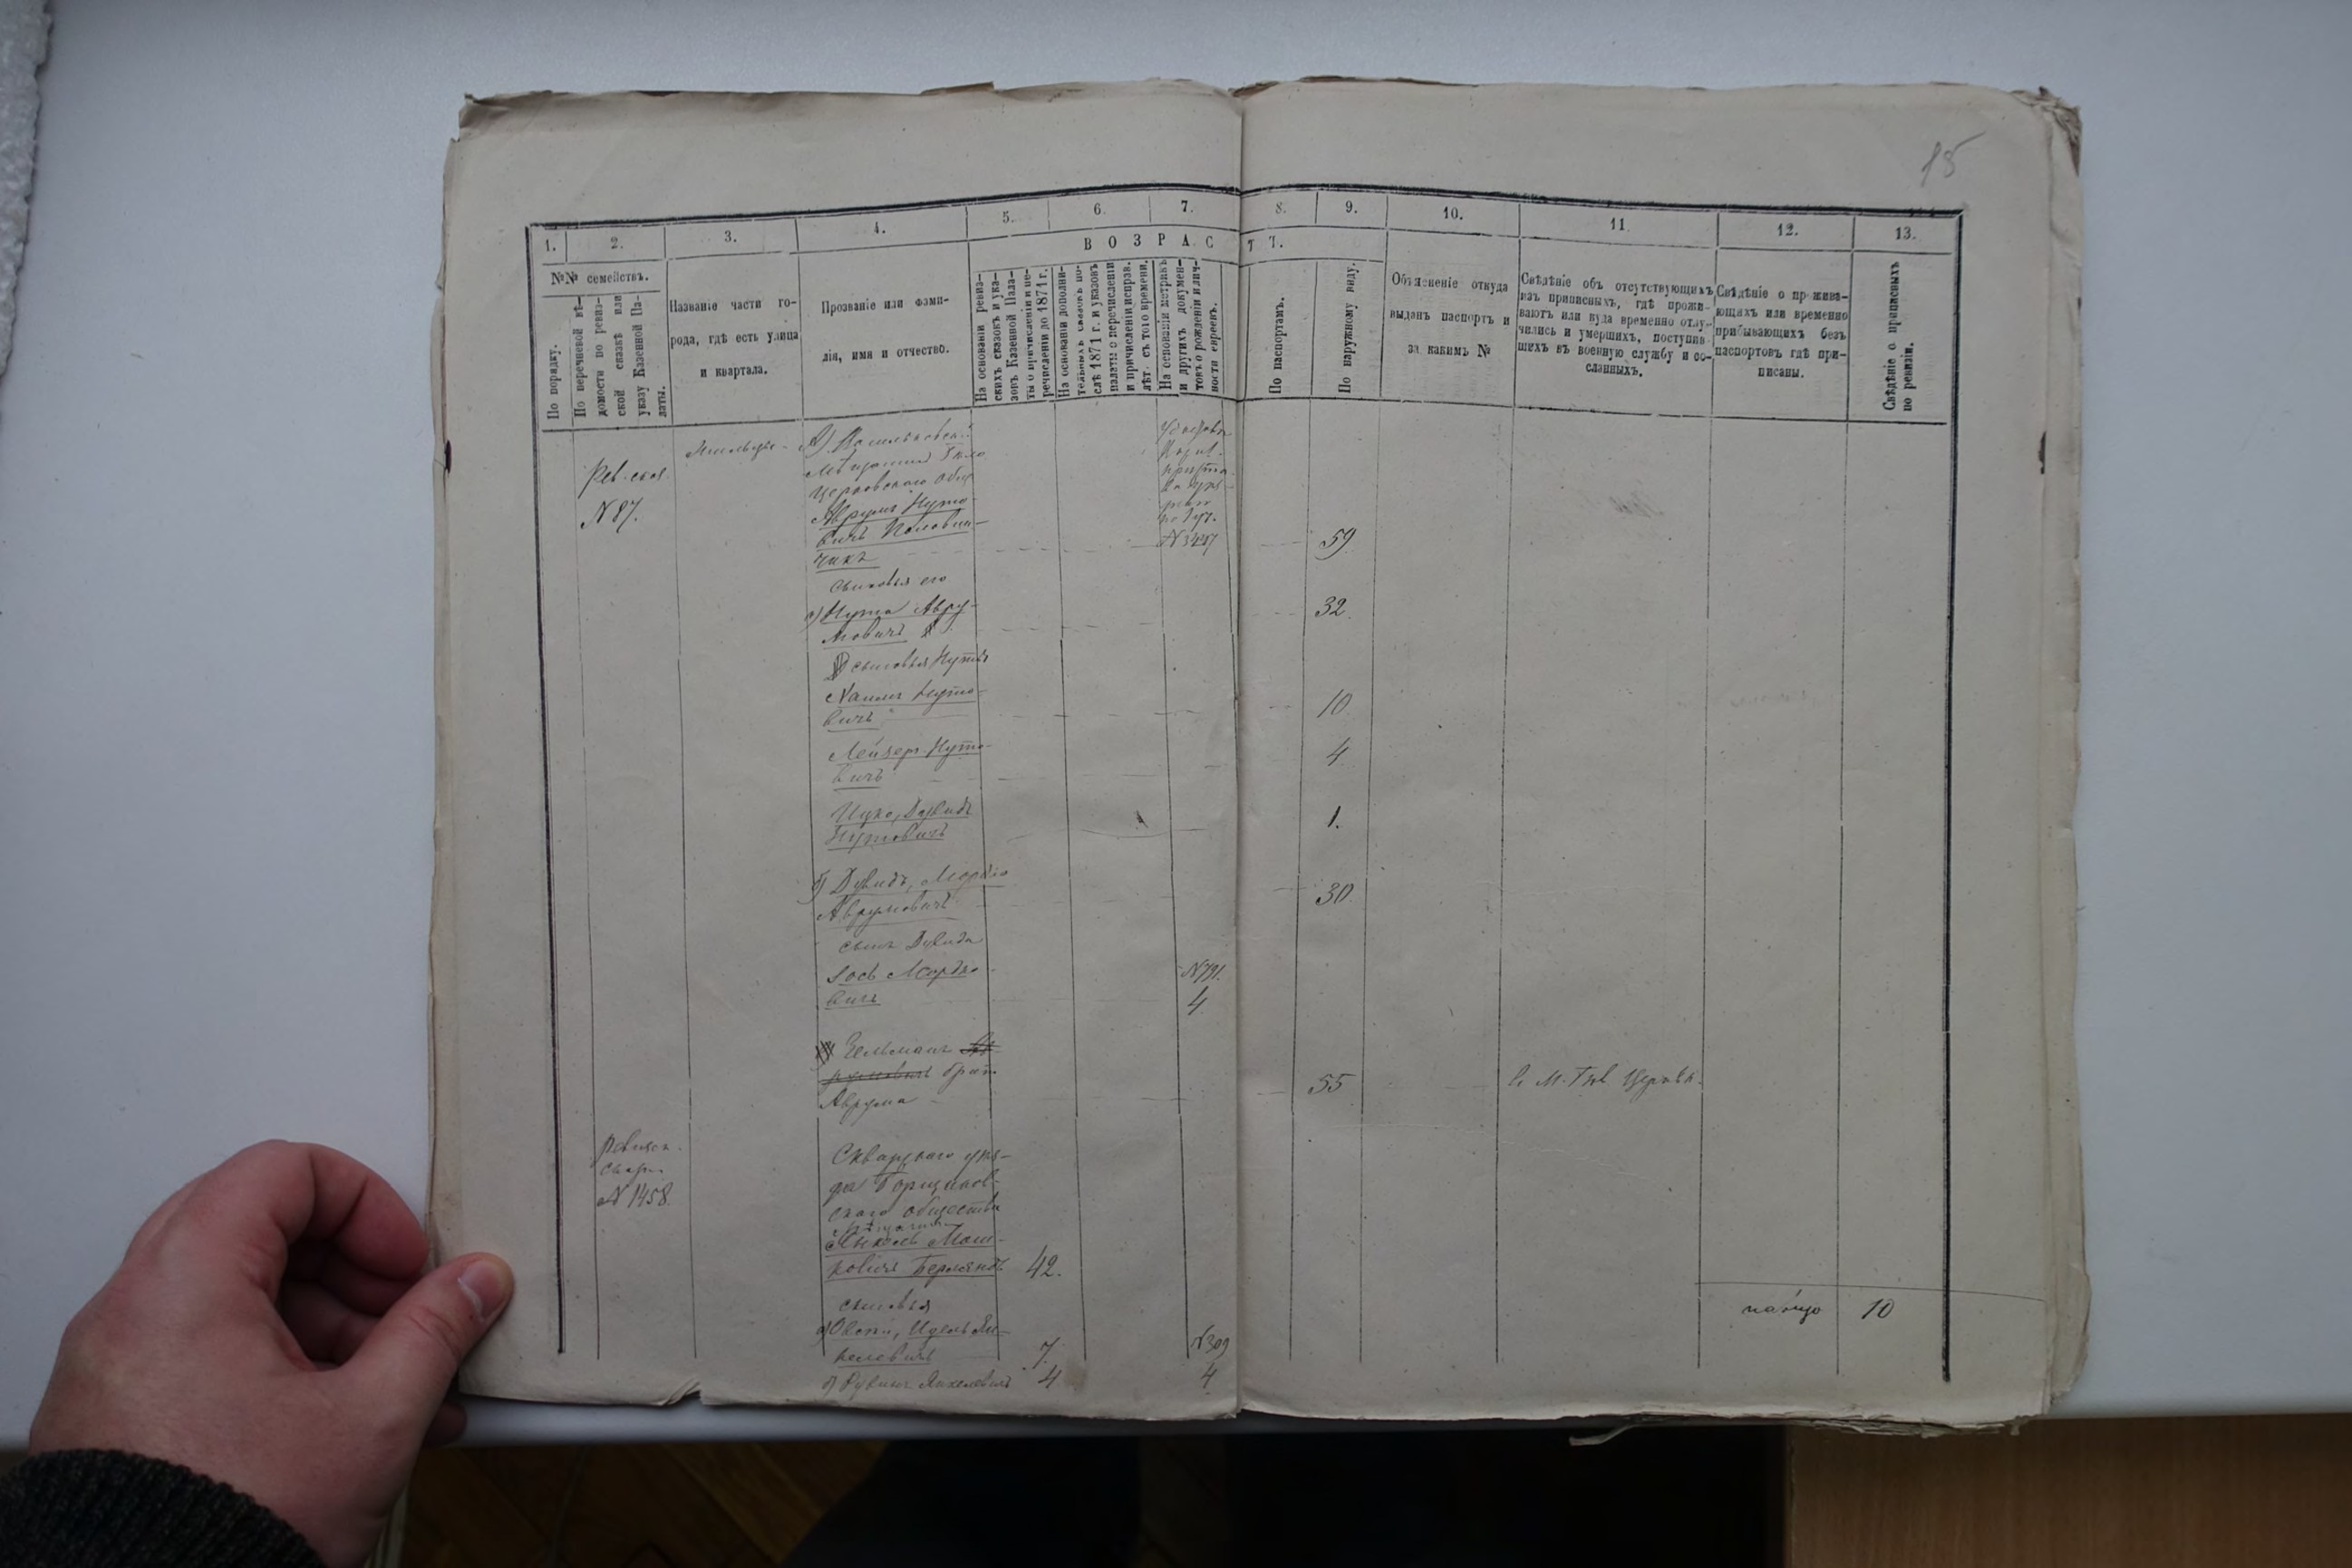 15
1.
2.
3.
4.
5.
6.
7.
8.
9.
10.
11.
12.
13.
№№ семействъ.
ВОЗРАСТЪ.
По порядку.
По перечневой вѣ-
домости по ревиз-
ской сказкѣ или
указу Казенной Па-
латы.
Названіе части го-
рода, гдѣ есть улица
и квартала.
Прозваніе или фами-
лія, имя и отчество.
На основаніи ревиз-
скихъ сказокъ и ука-
зовъ Казенной Пала-
ты о причисленіи и пе-
речисленіи до 1871 г.
На основаніи дополни-
тельныхъ сказокъ по-
слѣ 1871 г. и указовъ
палаты о перечисленіи
и причисленіи исправ.
лѣт. съ того времени.
На основаніи метрикъ
и другихъ докумен-
товъ о рожденіи и лич-
ности евреевъ.
По паспортамъ.
По наружному виду.
Объясненіе откуда
выданъ паспортъ и
за какимъ №
Свѣдѣніе объ отсутствующихъ
изъ приписныхъ, гдѣ прожи-
ваютъ или куда временно отлу-
чились и умершихъ, поступив-
шихъ въ военную службу и со-
сланныхъ.
Свѣдѣніе о прожива-
ющихъ или временно
прибывающихъ безъ
паспортовъ гдѣ при-
писаны.
Свѣдѣніе о приписныхъ
по ревизіи.
Рев. сказ.
№ 87.
Мѣщанинъ Бѣло
Церковскаго Общ
Аврумъ Нуто-
вичъ Половин-
чикъ
59
сыновья его
а) Нута Авру-
мовичъ
32
сыновья Нуты
Хаимъ Нуто-
вичъ
10
Лейзеръ Нуто-
вичъ
4
Ицко, Дувидъ
Нутовичъ
1.
б) Дувидъ, Мордко
Аврумовичъ
30
сынъ Дувида
Іось Мордко-
вичъ
№ 791.
4
Зельманъ
братъ
Аврума
55
в м. Бѣл Церкв.
Ревизск.
сказк.
№ 1458.
Сквирскаго уѣз-
да Борщагов-
скаго общества
мѣщанинъ
Янкель Мош-
ковичъ Берлянд
42.
сыновья
а) Овсей, Идель Ян-
келевичъ
7.
№ 309
4
б) Рувинъ Янкелевичъ
4
10